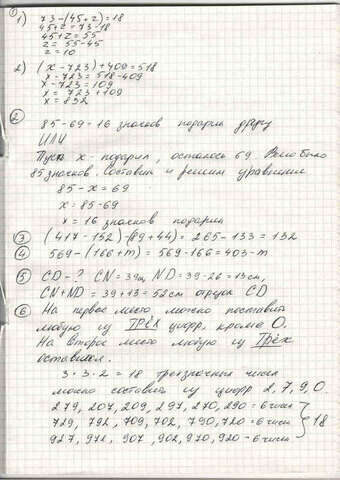 ①
1) 73-(45+z)=18
45+z=73-18
45+z=55
z = 55-45
z = 10
2) (x-723)+409=518
x-723=518-409
x-723=109
x = 723+109
x = 832
②
85-69=16 значков подарил другу
ИЛИ
Пусть x - подарил, осталось 69. Всего было
85 значков. Составим и решим уравнение
85 - x = 69
x = 85-69
x = 16 значков подарили
③ (417-152)-(89+44)=265-133=132
④ 569-(166+m)=569-166=403-m
⑤ CD-? CN=39см, ND=39-26=13см,
CN+ND=39+13=52см отрезок CD
⑥ На первое место можно поставить
любую из ТРЁХ цифр, кроме 0.
На второе место любую из ТРЁХ
оставшихся.
3·3·2=18 трехзначных чисел
можно составить из цифр 2,7,9,0
279, 207, 209, 297, 270, 290 - 6 чисел
729, 792, 709, 702, 790, 720 - 6 чисел } 18
927, 972, 907, 902, 970, 920 - 6 чисел